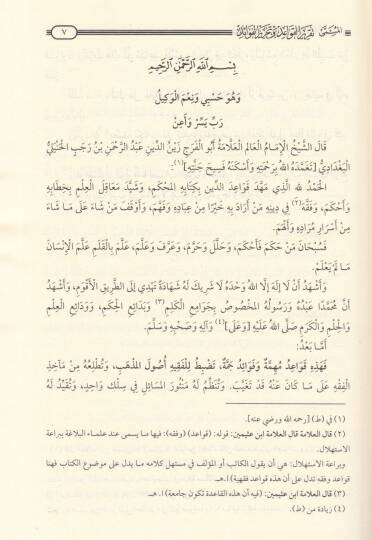 المُسَمَّى تَقْرِيرُ القَوَاعِدِ وَتَحْرِيرُ الفَوَائِدِ ٧
بِسْمِ اللَّهِ الرَّحْمَنِ الرَّحِيمِ
وَهُوَ حَسْبِي وَنِعْمَ الْوَكِيلُ
رَبِّ يَسِّرْ وَأَعِنْ
قَالَ الشَّيْخُ الْإِمَامُ الْعَالِمُ الْعَلَّامَةُ أَبُو الْفَرَجِ زَيْنُ الدِّينِ عَبْدُ الرَّحْمَنِ بْنُ رَجَبٍ الْحَنْبَلِيُّ
الْبَغْدَادِيُّ [تَغَمَّدَهُ اللهُ بِرَحْمَتِهِ وَأَسْكَنَهُ فَسِيحَ جَنَّتِهِ](١):
الْحَمْدُ للهِ الَّذِي مَهَّدَ قَوَاعِدَ الدِّينِ بِكِتَابِهِ الْمُحْكَمِ، وَشَيَّدَ مَعَاقِلَ الْعِلْمِ بِخِطَابِهِ
وَأَحْكَمَ، وَفَقَّهَ(٢) فِي دِينِهِ مَنْ أَرَادَ بِهِ خَيْرًا مِنْ عِبَادِهِ وَفَهَّمَ، وَأَوْقَفَ مَنْ شَاءَ عَلَى مَا شَاءَ
مِنْ أَسْرَارِ مُرَادِهِ وَأَلْهَمَ.
فَسُبْحَانَ مَنْ حَكَمَ فَأَحْكَمَ، وَحَلَّلَ وَحَرَّمَ، وَعَرَّفَ وَعَلَّمَ، عَلَّمَ بِالْقَلَمِ عَلَّمَ الْإِنْسَانَ
مَا لَمْ يَعْلَمْ.
وَأَشْهَدُ أَنْ لَا إِلَهَ إِلَّا اللهُ وَحْدَهُ لَا شَرِيكَ لَهُ شَهَادَةً تَهْدِي إِلَى الطَّرِيقِ الْأَقْوَمِ، وَأَشْهَدُ
أَنَّ مُحَمَّدًا عَبْدُهُ وَرَسُولُهُ الْمَخْصُوصُ بِجَوَامِعِ الْكَلِمِ(٣) وَبَدَائِعِ الْحِكَمِ، وَوَدَائِعِ الْعِلْمِ
وَالْحِلْمِ وَالْكَرَمِ صَلَّى اللهُ عَلَيْهِ [وَعَلَى](٤) وَآلِهِ وَصَحْبِهِ وَسَلَّمَ.
أَمَّا بَعْدُ:
فَهَذِهِ قَوَاعِدُ مُهِمَّةٌ وَفَوَائِدُ جَمَّةٌ، تَضْبِطُ لِلْفَقِيهِ أُصُولَ الْمَذْهَبِ، وَتُطْلِعُهُ مِنْ مَآخِذِ
الْفِقْهِ عَلَى مَا كَانَ عَنْهُ قَدْ تَغَيَّبَ، وَتُنَظِّمُ لَهُ مَنْثُورَ الْمَسَائِلِ فِي سِلْكٍ وَاحِدٍ، وَتُقَيِّدُ لَهُ
(١) في (ط) [رحمه الله ورضي عنه].
(٢) قال العلامة قال العلامة ابن عثيمين: قوله: (قواعد) (وفقه): فيها ما يسمى عند علماء البلاغة ببراعة
الاستهلال.
وبراعة الاستهلال: هي أن يقول الكاتب أو المؤلف في مستهل كلامه ما يدل على موضوع الكتاب فهنا
قواعد وفقه تدل على أن هذه قواعد فقهية) ا. هـ.
(٣) قال العلامة ابن عثيمين: (فيه أن هذه القاعدة تكون جامعة) ا. هـ.
(٤) زيادة من (ط).